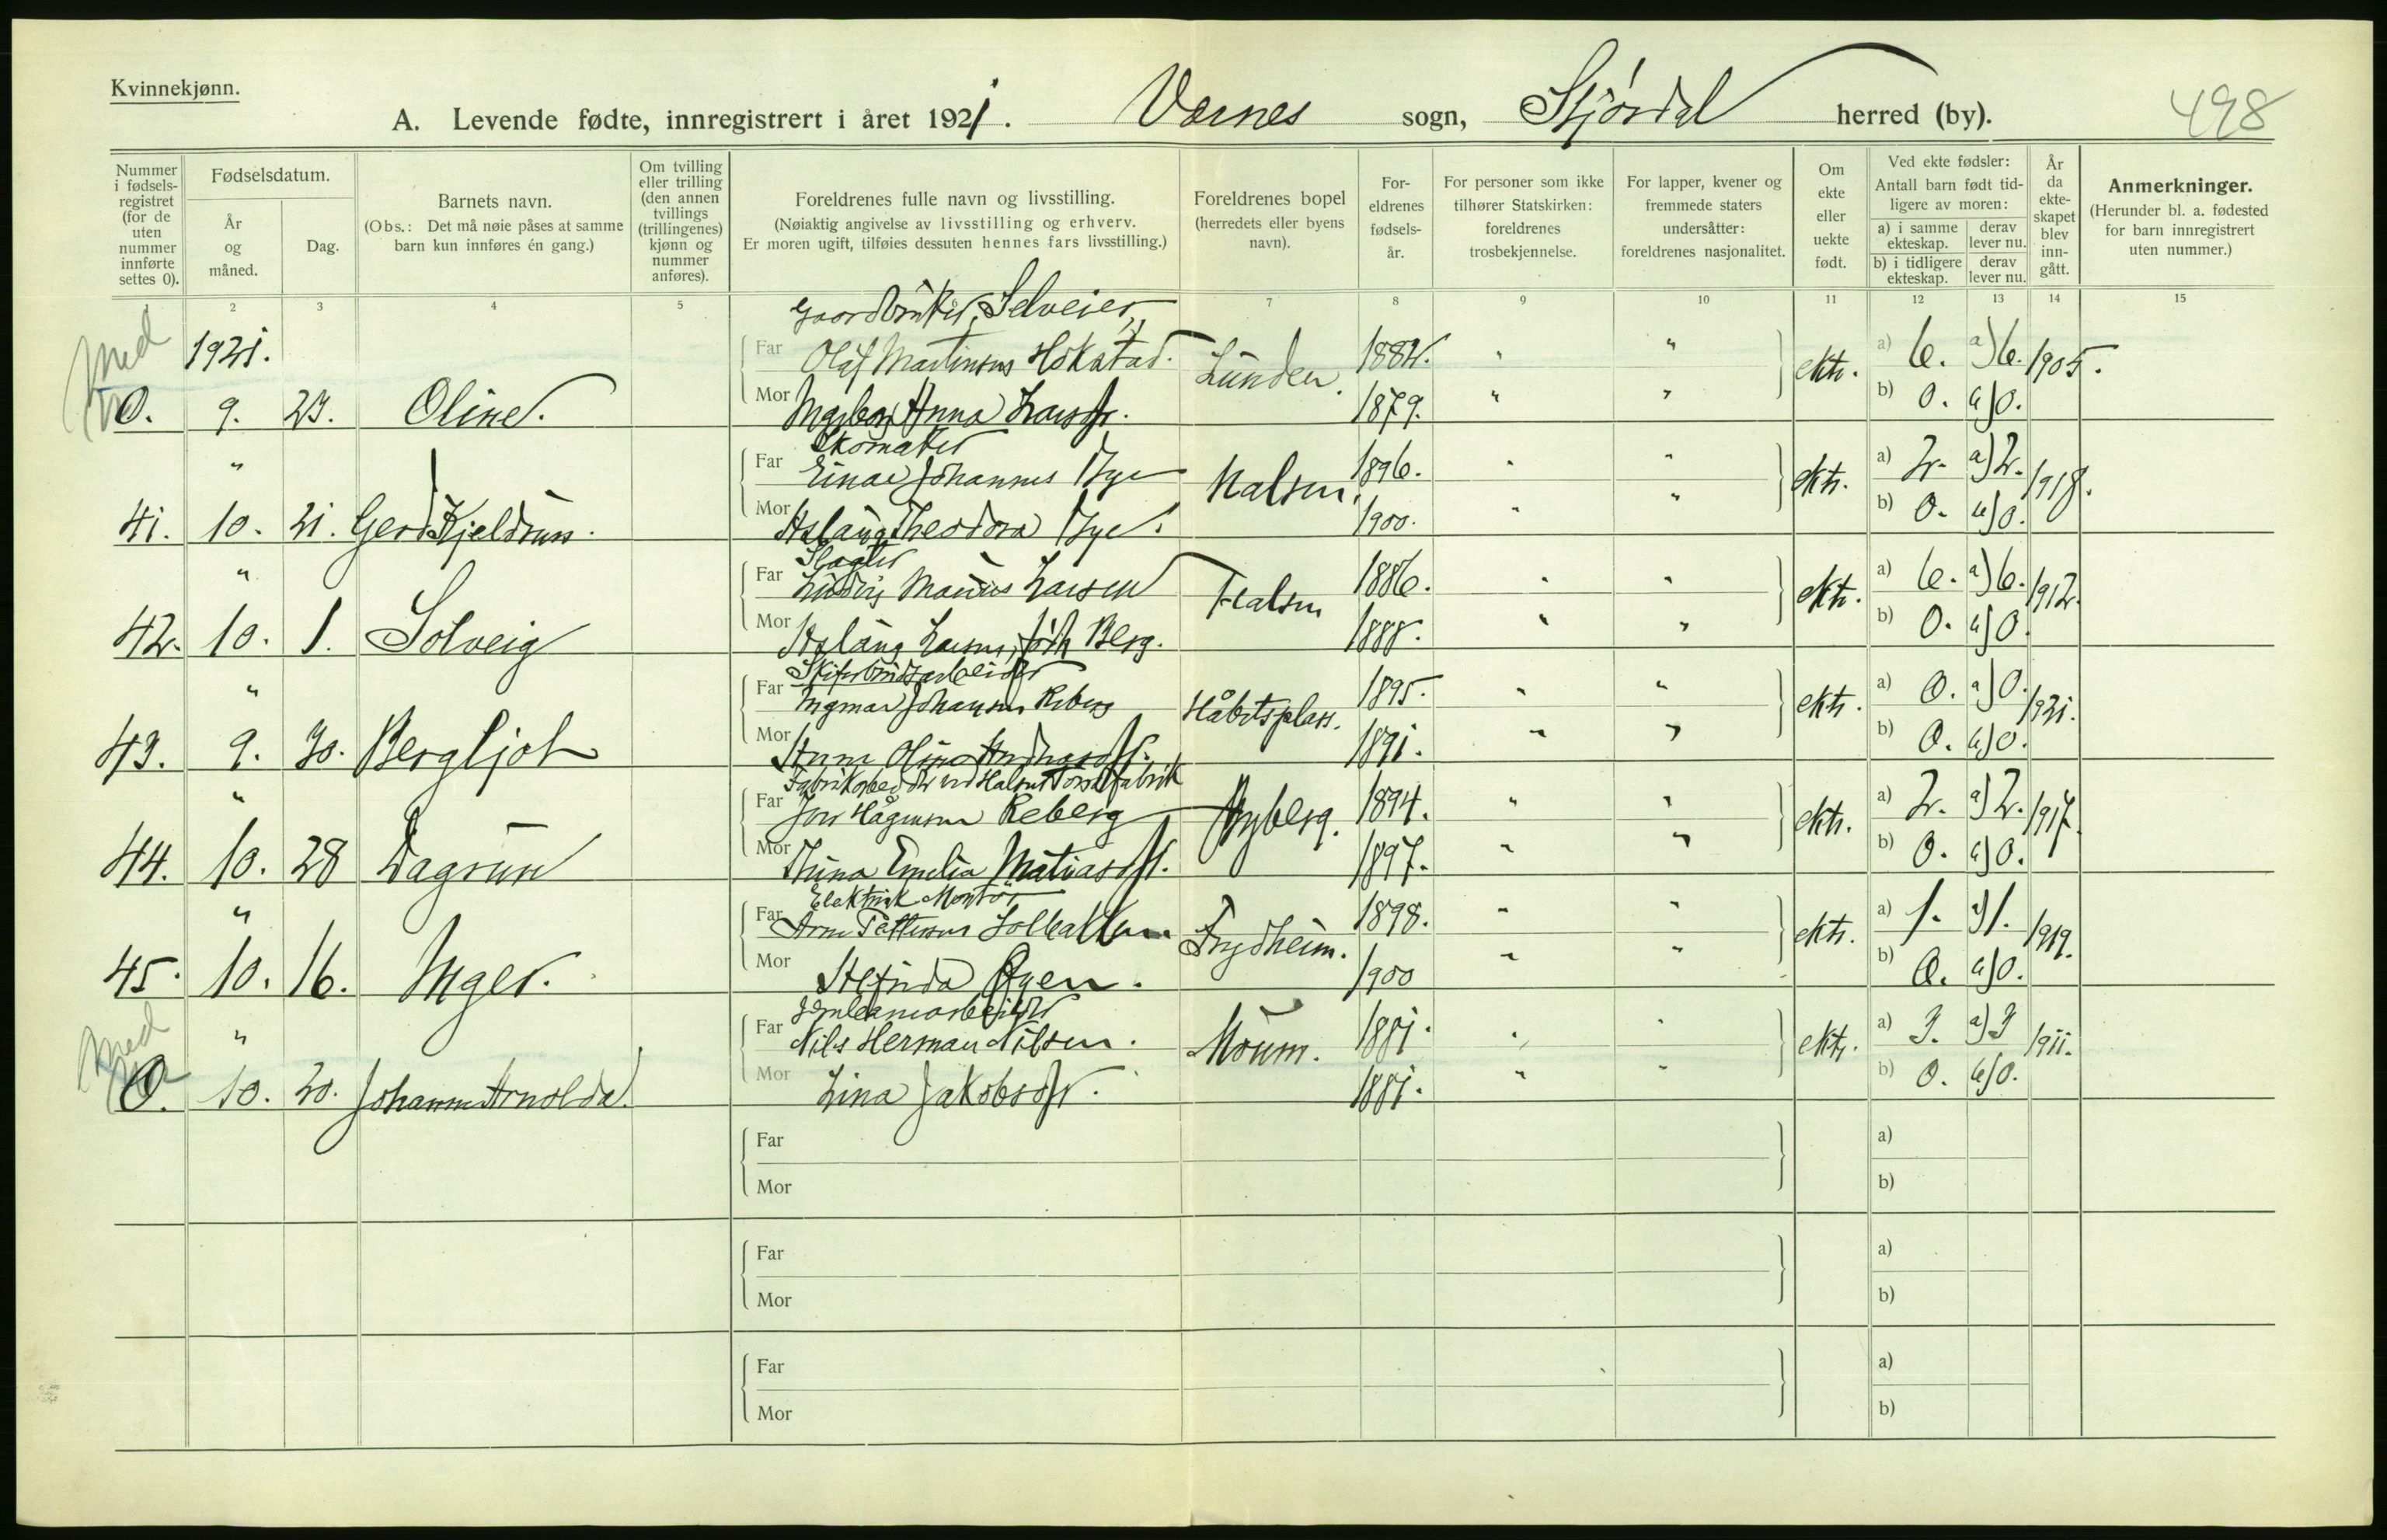 Kvinnekjønn.
A. Levende fødte, innregistrert i året 1921. Værnes sogn, Stjørdal herred (by). 498
Nummer i fødsels-registret (for de uten nummer innførte settes 0).
Fødselsdatum.
År og måned.
Dag.
Barnets navn.
(Obs.: Det må nøie påses at samme barn kun innføres én gang.)
Om tvilling eller trilling (den annen tvillings (trillingenes) kjønn og nummer anføres).
Foreldrenes fulle navn og livsstilling.
(Nøiaktig angivelse av livsstilling og erhverv. Er moren ugift, tilføies dessuten hennes fars livsstilling.)
Foreldrenes bopel (herredets eller byens navn).
For-eldrenes fødsels-år.
For personer som ikke tilhører Statskirken: foreldrenes trosbekjennelse.
For lapper, kvener og fremmede staters undersåtter: foreldrenes nasjonalitet.
Om ekte eller uekte født.
Ved ekte fødsler: Antall barn født tid-ligere av moren:
a) i samme ekteskap. derav lever nu.
b) i tidligere ekteskap. derav lever nu.
År da ekte-skapet blev inn-gått.
Anmerkninger.
(Herunder bl. a. fødested for barn innregistrert uten nummer.)
1 2 3 4 5 7 8 9 10 11 12 13 14 15
med
Gaardbruker, Selveier
1921. Far Olaf Martinsen Hokstad. Lunden. 1882. " " ekte. a) 6. a) 6. 1905.
0. 9. 23. Oline. Mor Anna Larsdtr. 1879. " " b) 0. b) 0.
Skomaker
" Far Einar Johannes Bye Halsen. 1896. " " ekte. a) 2. a) 2. 1918.
41. 10. 21. Gerd Kjeldrun. Mor Aslaug Theodora Bye. 1900. " " b) 0. b) 0.
Slagter
" Far Ludvig Marius Larsen Halsen 1886. " " ekte. a) 6. a) 6. 1912.
42. 10. 1. Solveig Mor Aslaug Larsen, født Berg. 1888. " " b) 0. b) 0.
Skiferbrudsarbeider
" Far Ingmar Johansen Reberg Håbetsplass. 1895. " " ekte. a) 0. a) 0. 1921.
43. 9. 30. Bergljot Mor Anna Oline Andreasdtr. 1891. " " b) 0. b) 0.
Fabrikarbeider ved Halsen fabrik
" Far Jon Hågensen Reberg Nyberg. 1894. " " ekte. a) 2. a) 2. 1917.
44. 10. 28 Dagrun Mor Emelia Matiasdtr. 1897. " " b) 0. b) 0.
Elektrisk Montør
" Far Arne Pettersen Frydheim. 1898. " " ekte. a) 1. a) 1. 1919.
45. 10. 16. Inger. Mor Øyen. 1900 " " b) 0. b) 0.
med
Jernbanearbeider
" Far Nils Herman Nilsen. Moum. 1881. " " ekte. a) 3. a) 3 1911.
0. 10. 20. Johanne Arnolda. Mor Lina Jakobsdtr. 1881. " " b) 0. b) 0.
Far a)
Mor b)
Far a)
Mor b)
Far a)
Mor b)